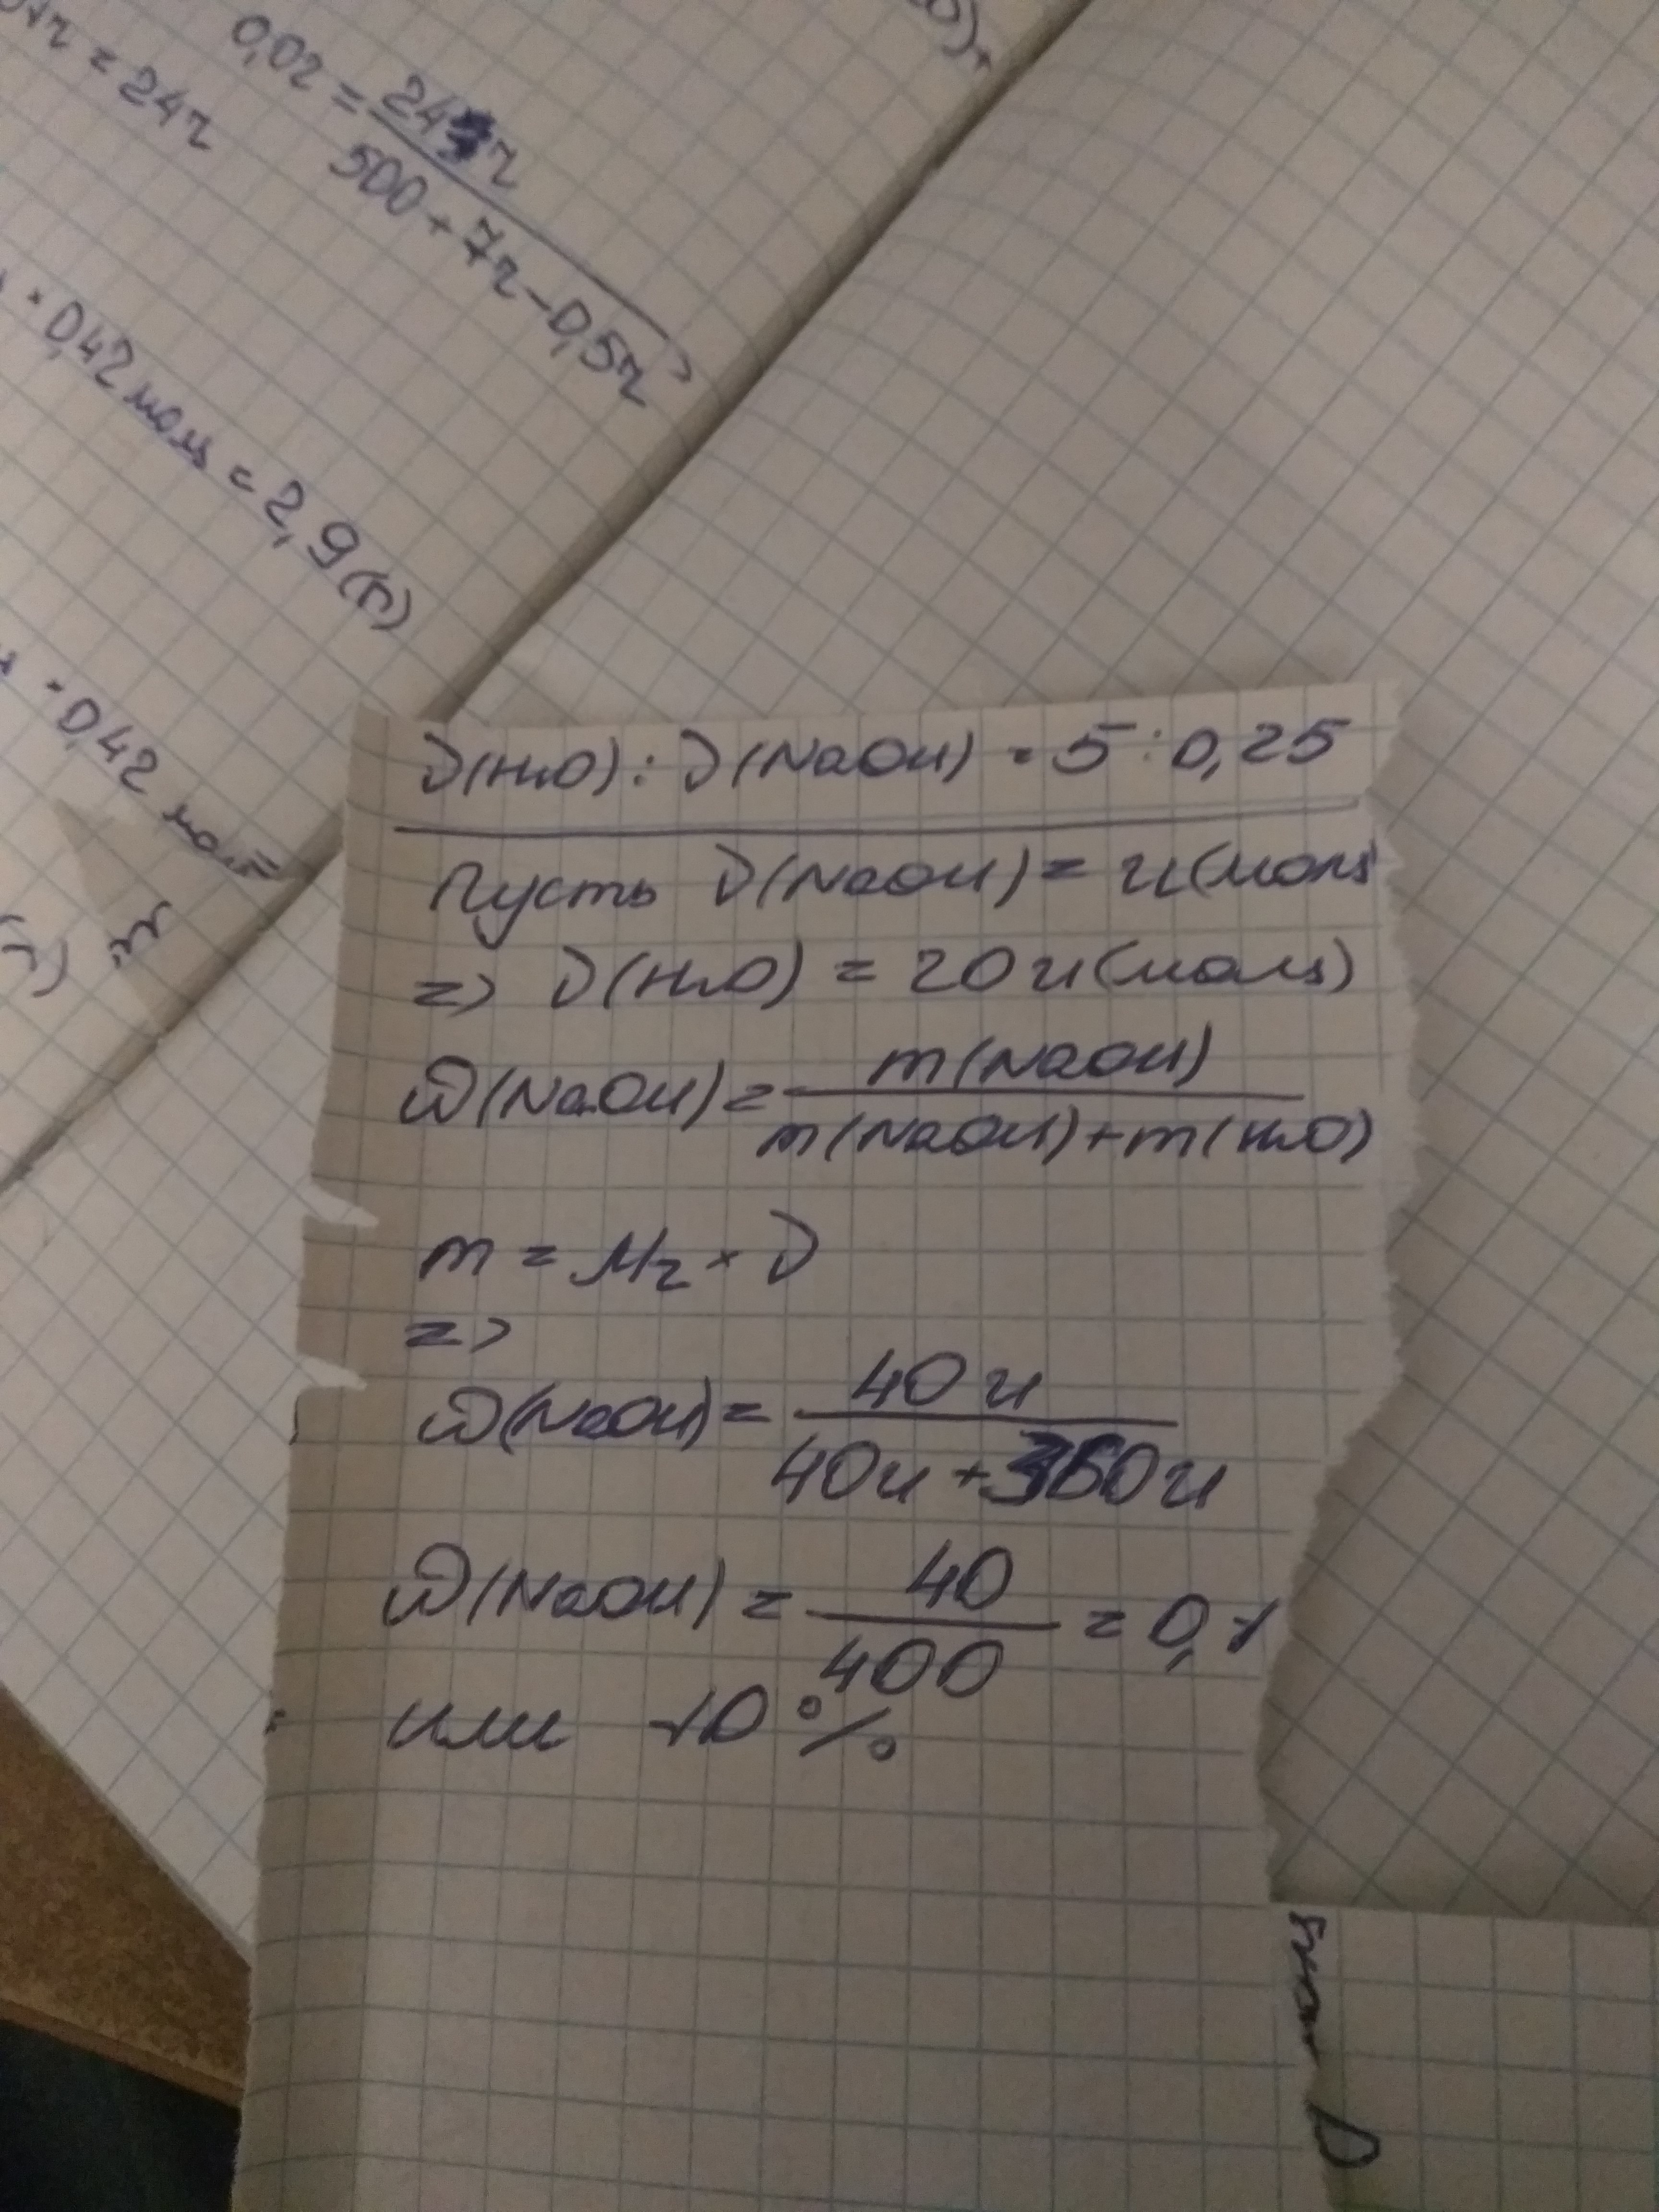 = 24г
0,02 = 24г
500 + 7г - 0,5г
· 0,42 моль = 2,9(г)
· 0,42 моль
ν(H₂O) : ν(NaOH) = 5 : 0,25
Пусть ν(NaOH) = н(моль)
=> ν(H₂O) = 20н(моль)
ω(NaOH) = m(NaOH)
m(NaOH) + m(H₂O)
m = Mr · ν
=>
ω(NaOH) = 40н
40н + 360н
ω(NaOH) = 40 = 0,1
400
или 10%